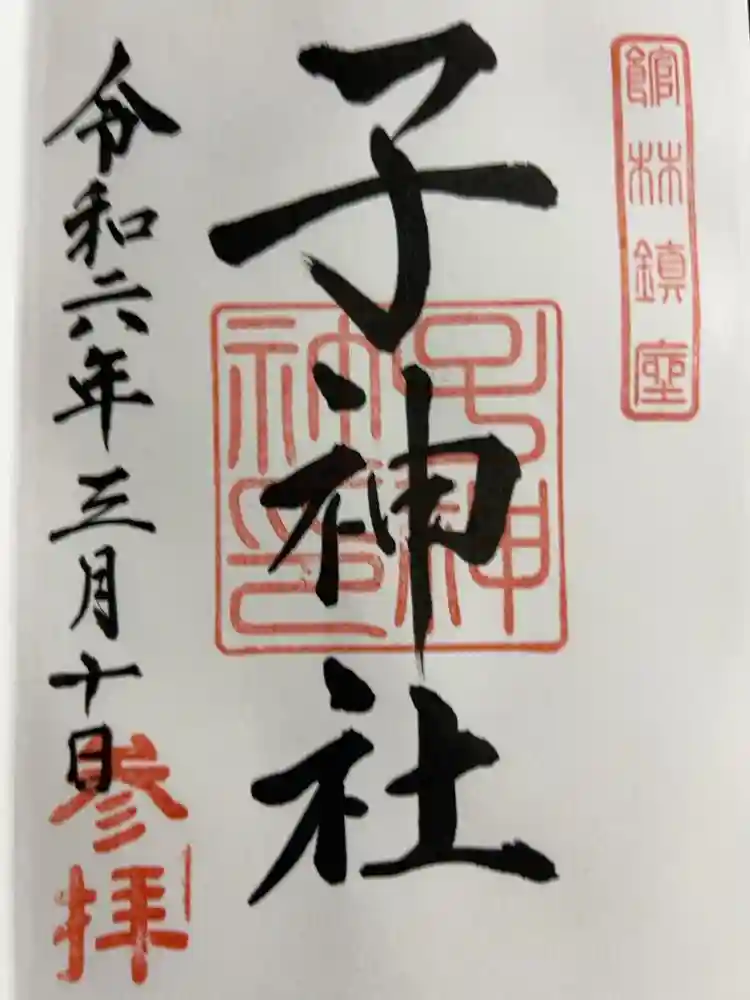 館林鎮座
子神社
子神
社印
令和六年三月十日
参拝